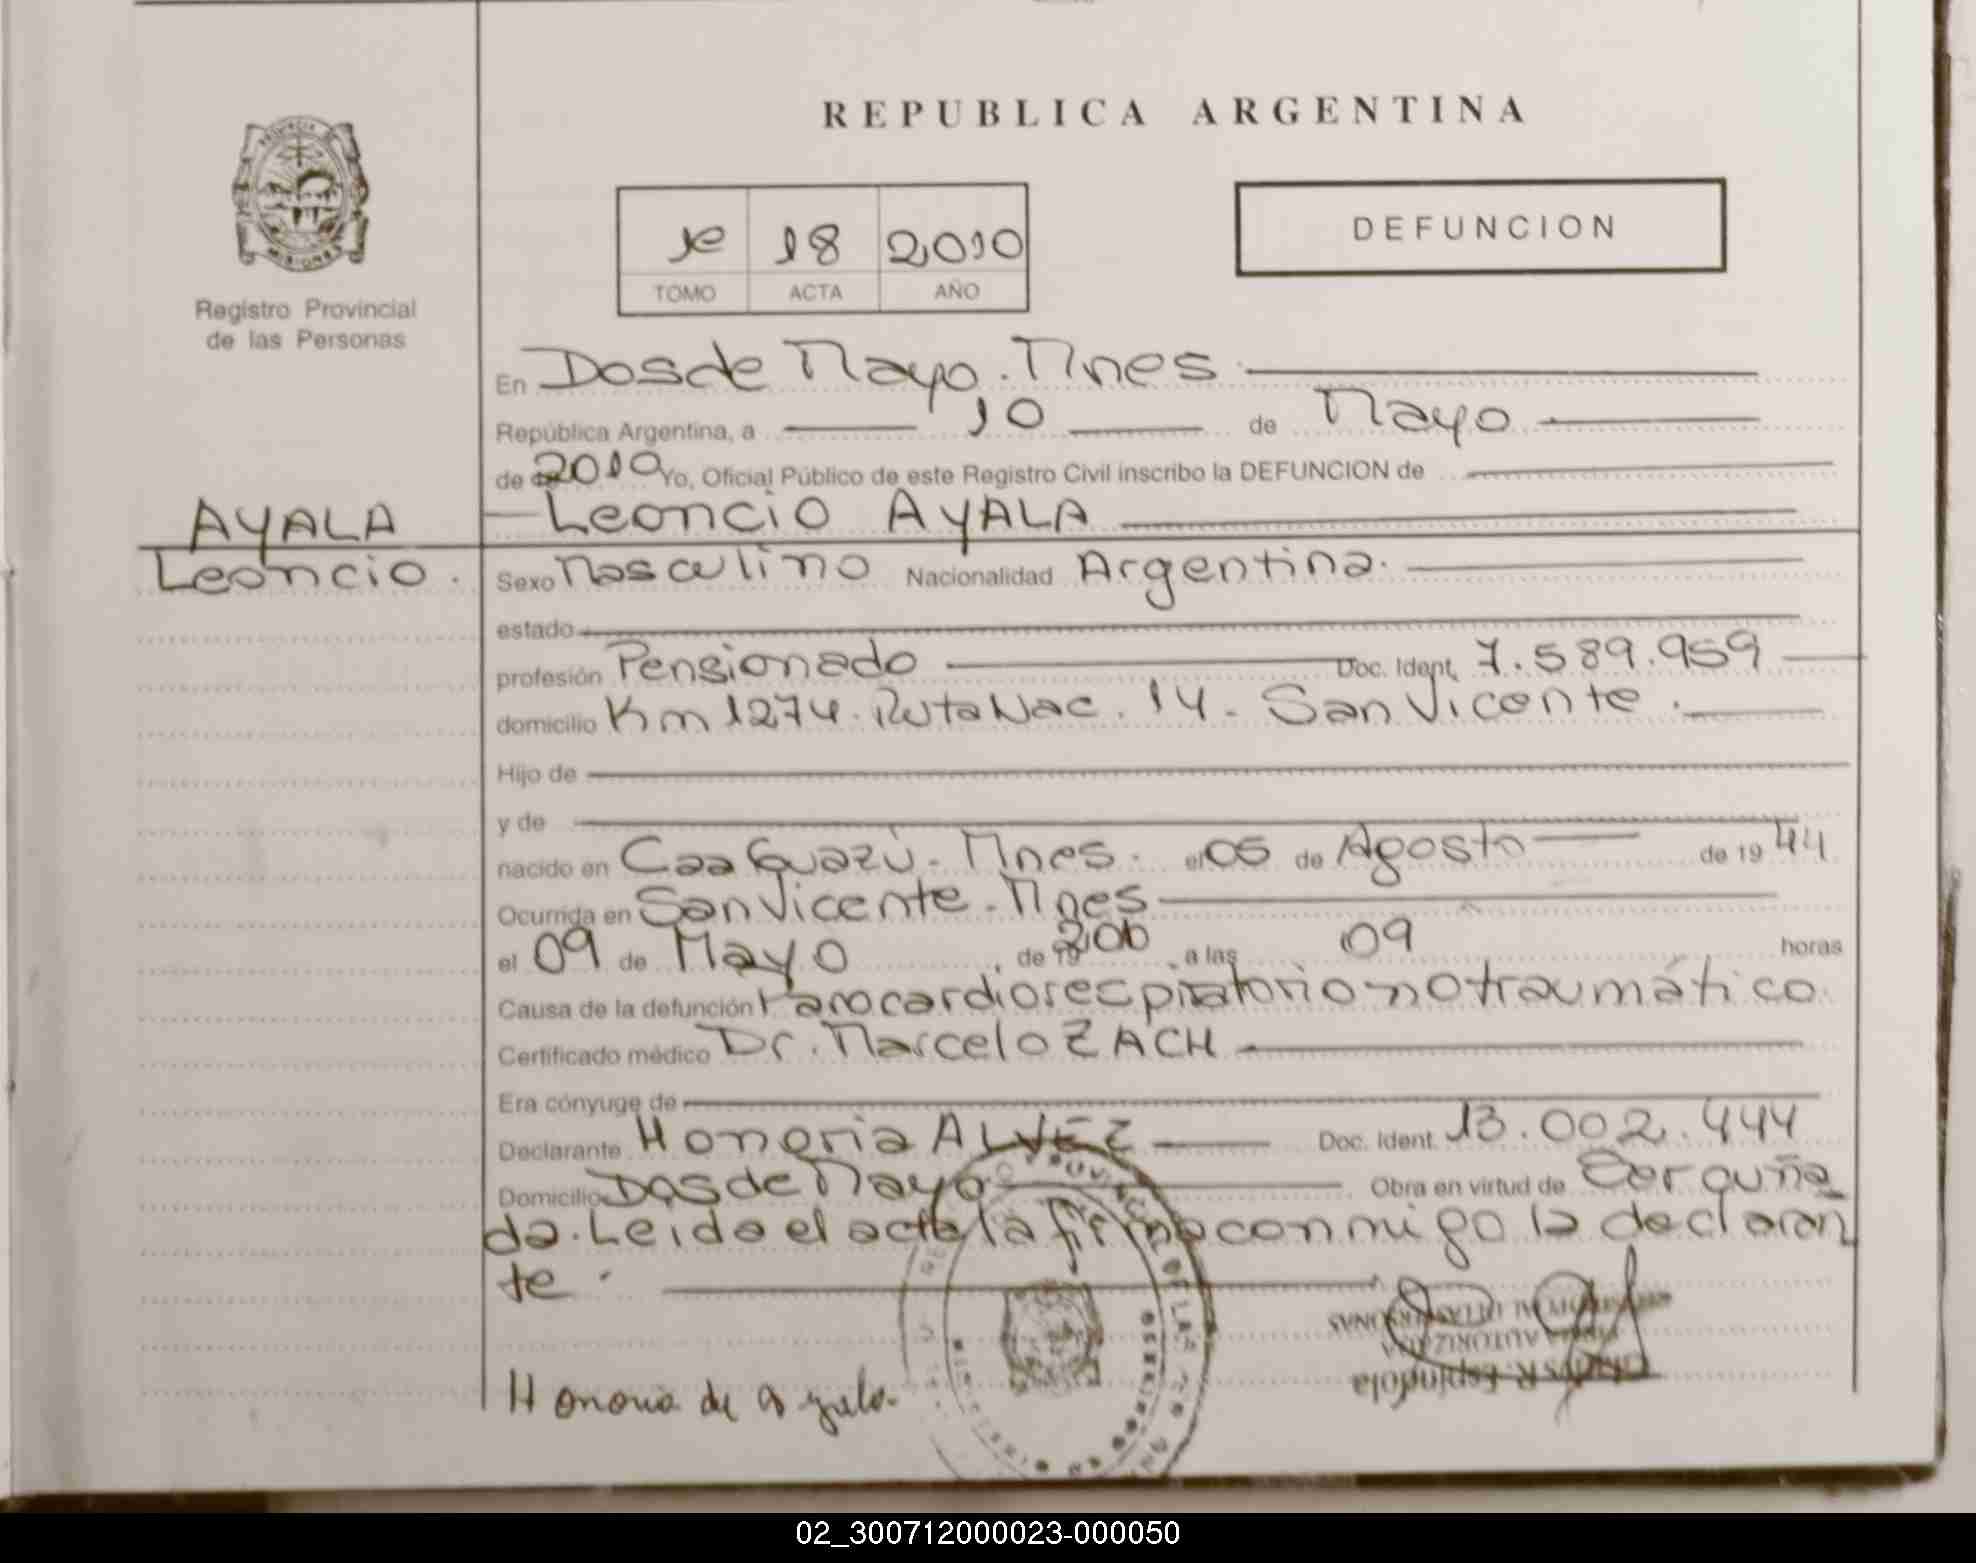 REPUBLICA ARGENTINA
PROVINCIA DE
MISIONES
Registro Provincial
de las Personas
1º 18 2010
TOMO ACTA AÑO
DEFUNCION
En Dos de Mayo. Mnes.
República Argentina, a 10 de Mayo
de 2010 Yo, Oficial Público de este Registro Civil inscribo la DEFUNCION de
AYALA
Leoncio.
Leoncio AYALA
Sexo Masculino Nacionalidad Argentina.
estado
profesión Pensionado Doc. Ident. 7.589.959
domicilio Km 1274. Ruta Nac. 14 - San Vicente.
Hijo de
y de
nacido en Caa Guazú - Mnes. el 05 de Agosto de 1944
Ocurrida en San Vicente. Mnes
el 09 de Mayo de 19 a las 09 horas
Causa de la defunción Paro cardiorespiratorio no traumático.
Certificado médico Dr. Marcelo ZACH
Era cónyuge de
Declarante Honoria ALVEZ Doc. Ident. 13.002.444
Domicilio Dos de Mayo Obra en virtud de
da. Leida el acta la firma conmigo la declaran
te.
Honoria de Ayala.
02_300712000023-000050